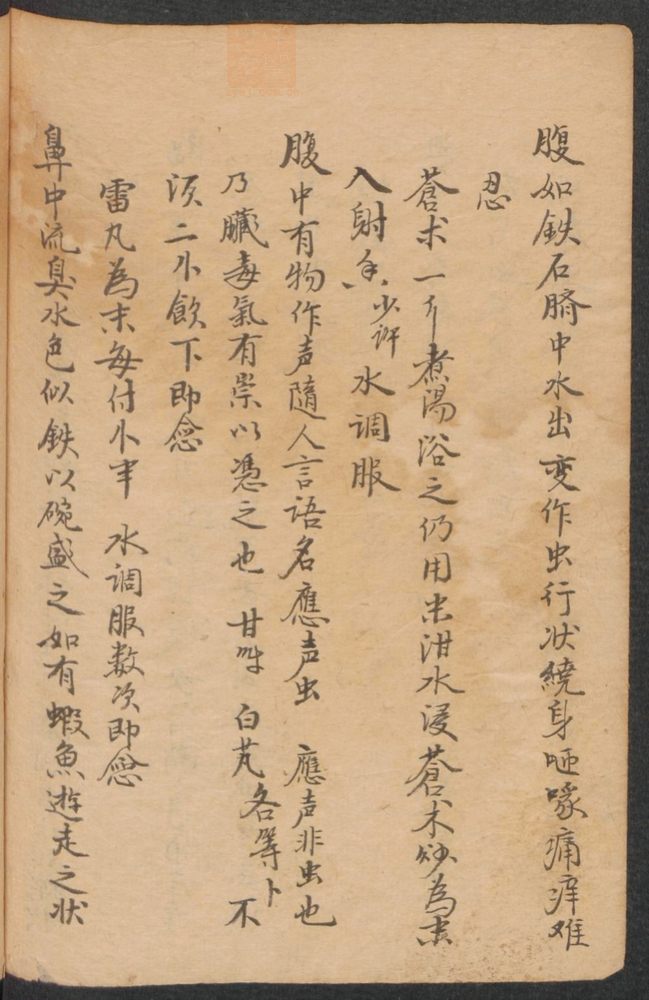 腹如鉄石臍中水出变作虫行状繞身咂啄痛痒难
忍
蒼术一斤煮湯浴之仍用米泔水浸蒼术炒為末
入射香少許水调服
腹中有物作声隨人言語名應声虫 應声非虫也
乃臟毒氣有祟以憑之也 甘草 白芃各等卜 不
须二小飲下即愈
雷丸為末每付小半 水调服数次即愈
鼻中流臭水色似鉄以碗盛之如有蝦魚遊走之状